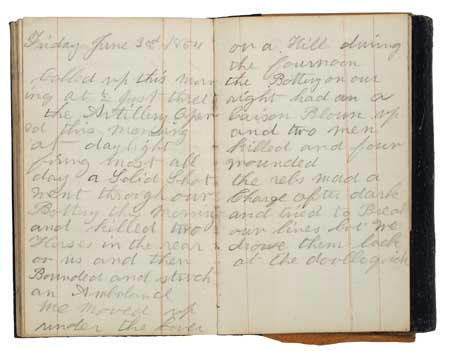 Friday June 3rd 1864
Called up this morn
ing at ½ past three
the Artillery open
ed this morning
at daylight
firing most all
day a Solid Shot
went through our
Battery this morning
and killed two
Horses in the rear
of us and then
Bounded and struck
an Ambulance
we moved up
under the cover
on a Hill during
the fournoon
the Battery on our
right had an a
Caison Blown up
and two men
killed and four
wounded
the rebs mad a
Charge after dark
and tried to Break
our lines but we
drove them back
at the double quick